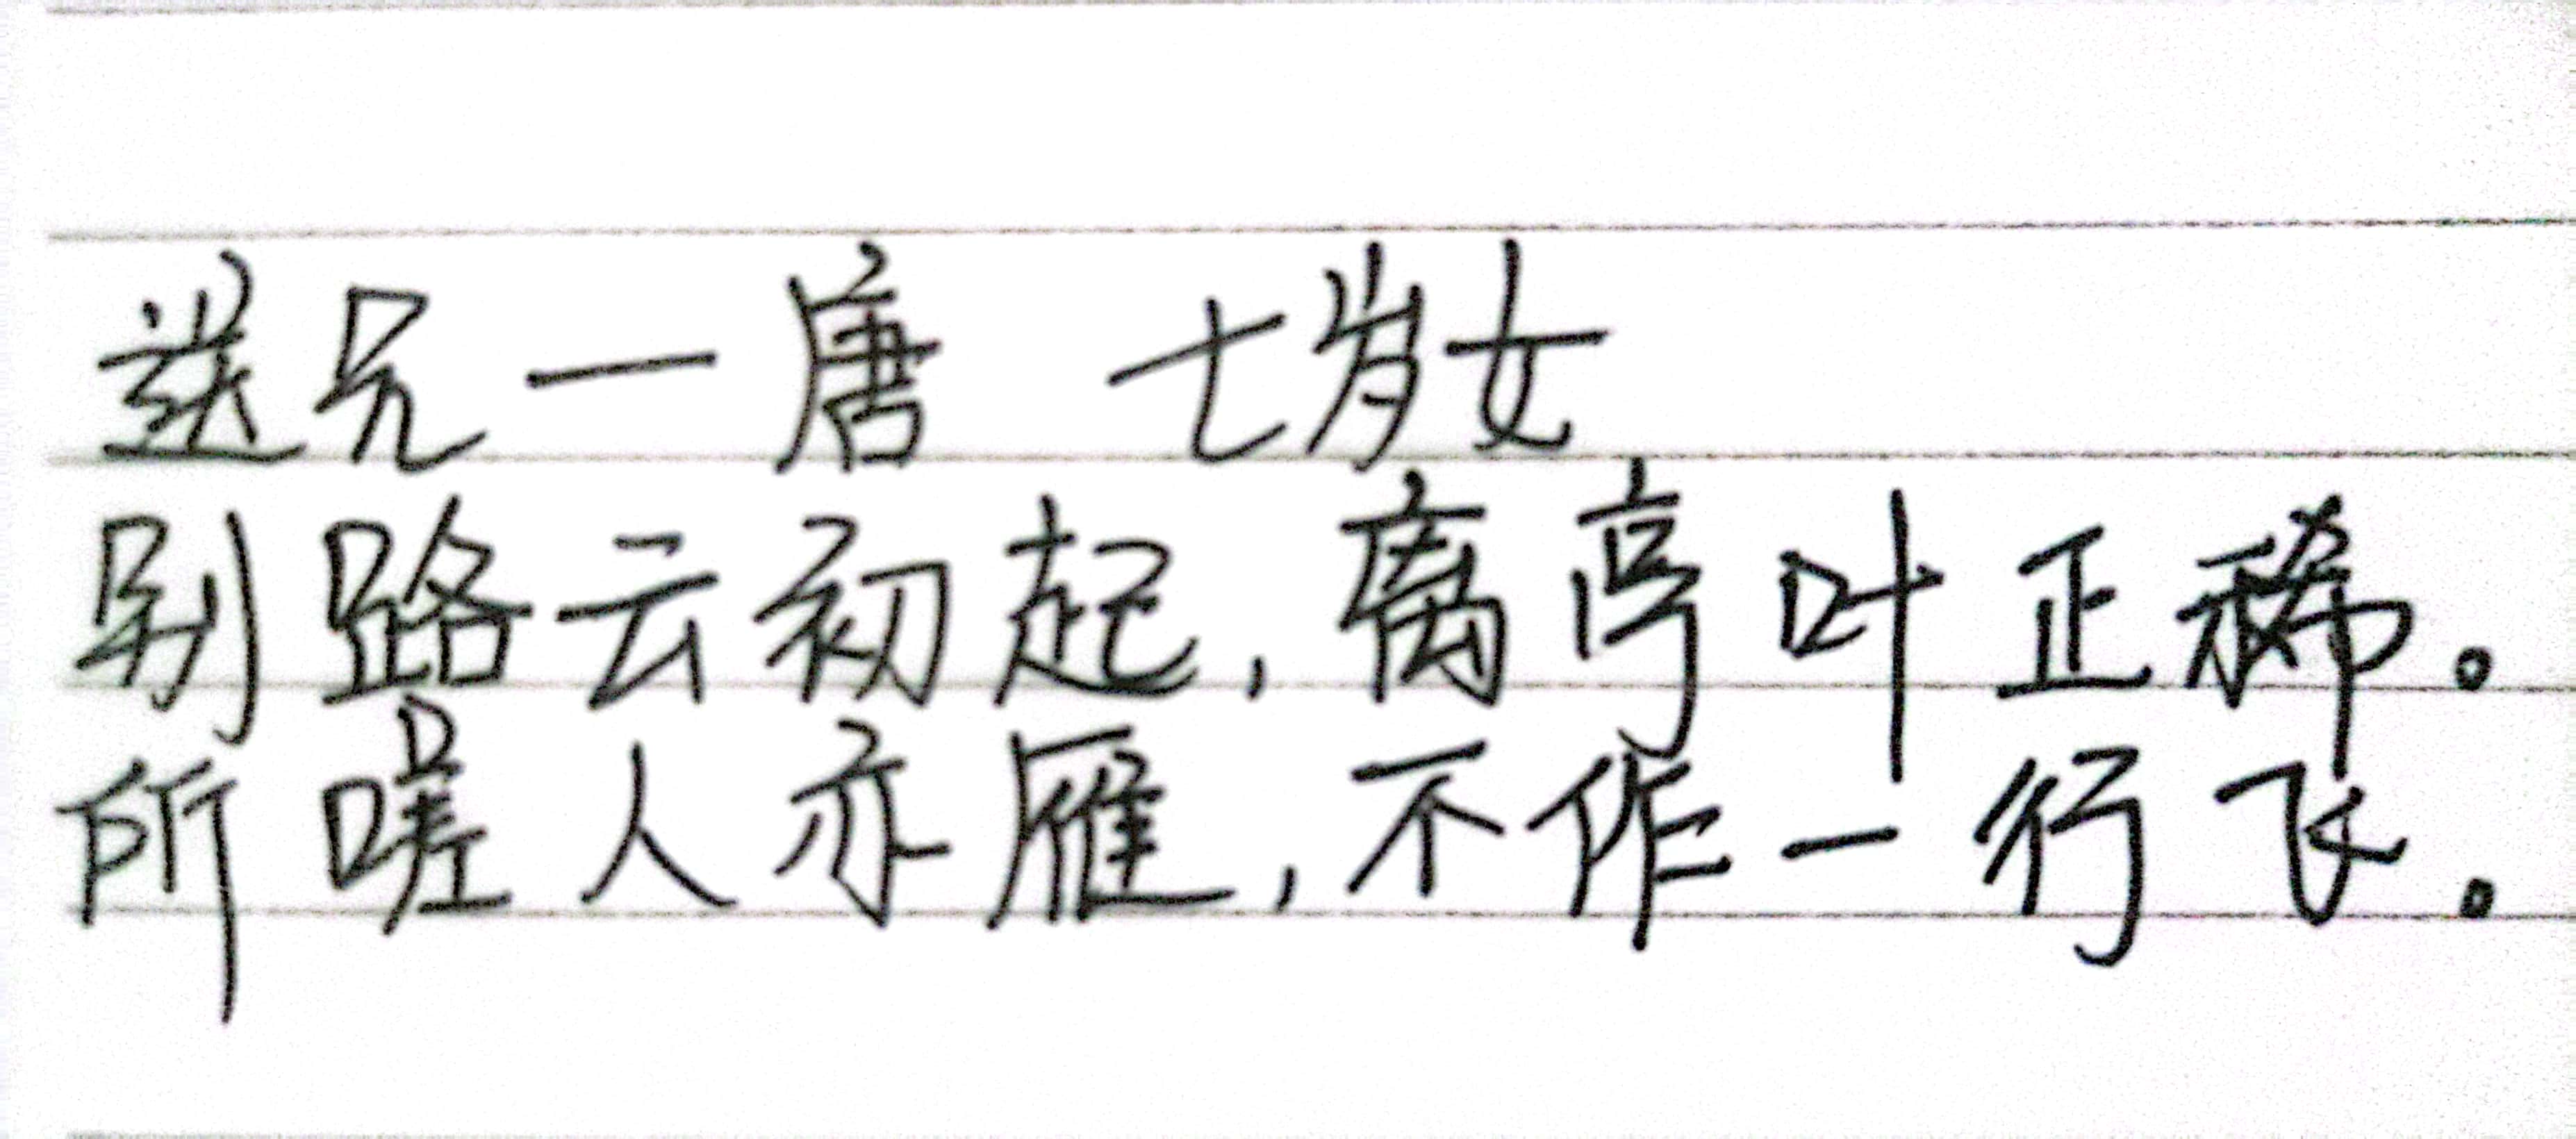 送兄一唐 七岁女
别路云初起,离亭叶正稀。
所嗟人亦雁,不作一行飞。